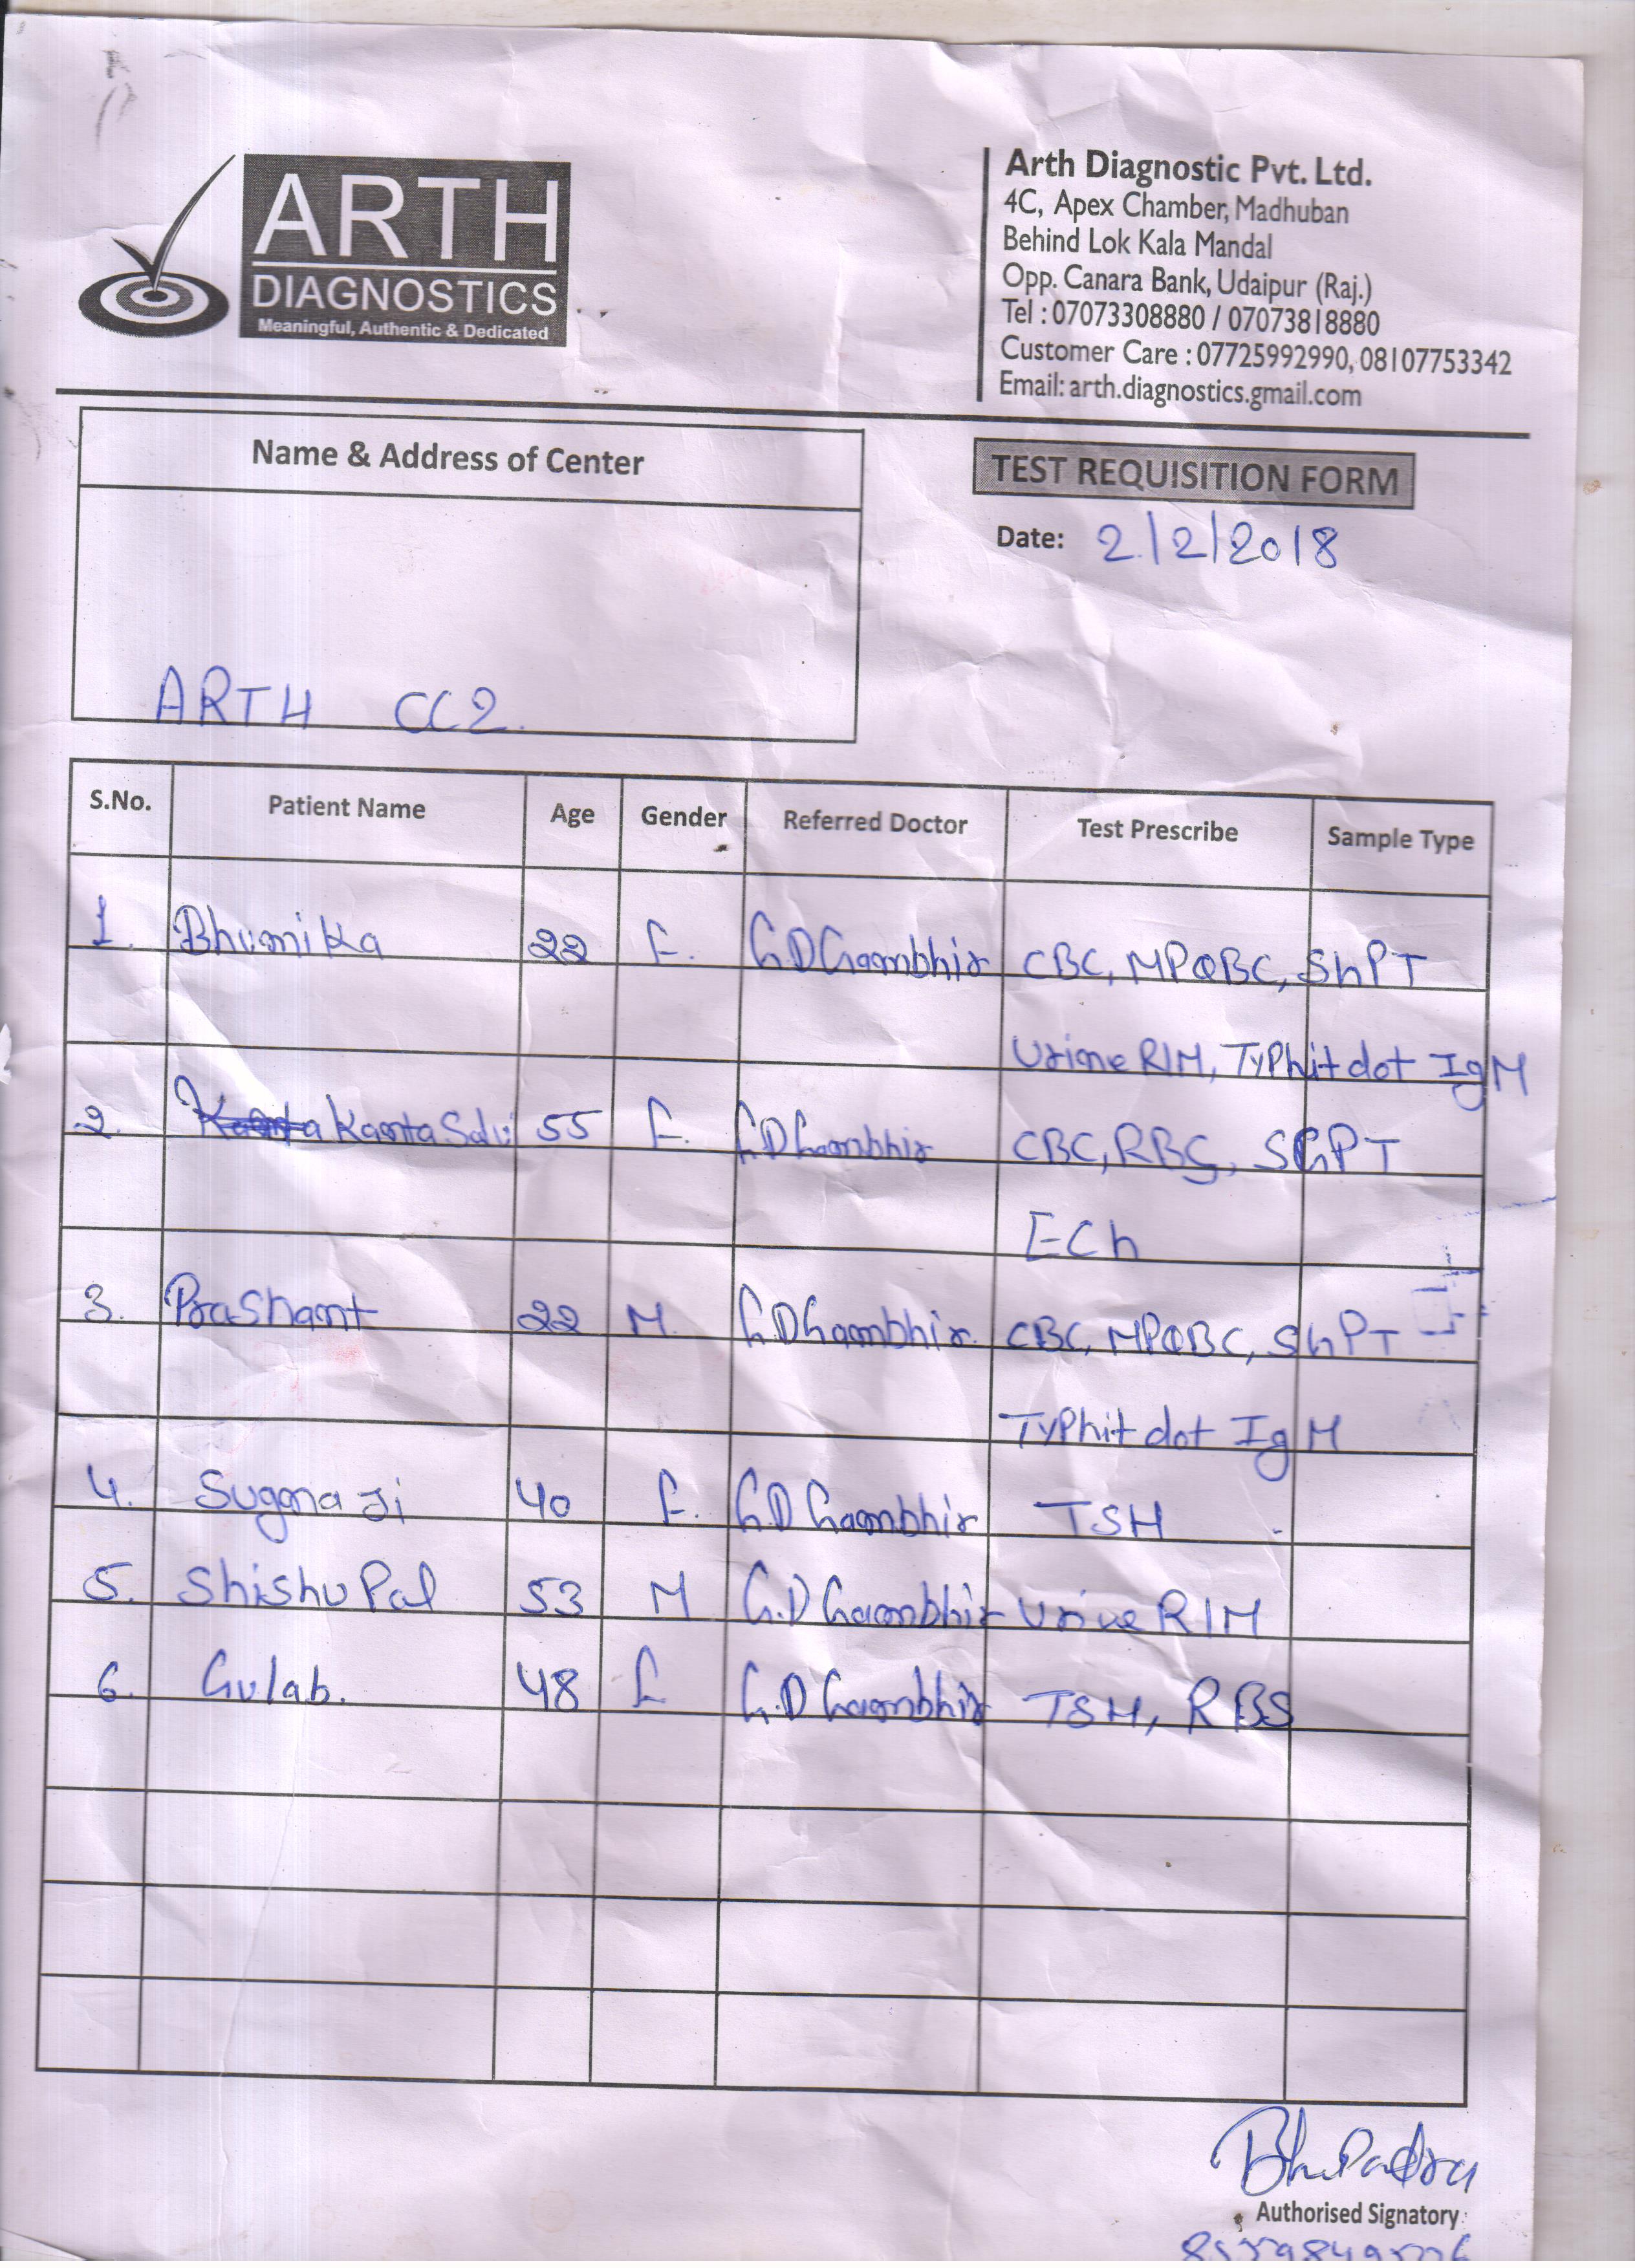 ARTH
DIAGNOSTICS
Meaningful, Authentic & Dedicated
Arth Diagnostic Pvt. Ltd.
4C, Apex Chamber, Madhuban
Behind Lok Kala Mandal
Opp. Canara Bank, Udaipur (Raj.)
Tel : 07073308880 / 07073818880
Customer Care : 07725992990, 08107753342
Email: arth.diagnostics.gmail.com
Name & Address of Center
ARTH CC2
TEST REQUISITION FORM
Date: 2/2/2018
S.No. Patient Name Age Gender Referred Doctor Test Prescribe Sample Type
1. Bhumika 22 F. G.D Gambhir CBC, MPQBC, SGPT
Urine R/M, TyPhit dot IgM
2. Kanta Salvi 55 F. G.D Gambhir CBC, RBS, SGPT
ECG
3. PraShant 22 M. G.D Gambhir CBC, MPQBC, SGPT
TyPhit dot IgM
4. Sugna Ji 40 F. G.D Gambhir TSH
5. Shishu Pal 53 M G.D Gambhir Urine R/M
6. Gulab. 48 F G.D Gambhir TSH, RBS
Authorised Signatory